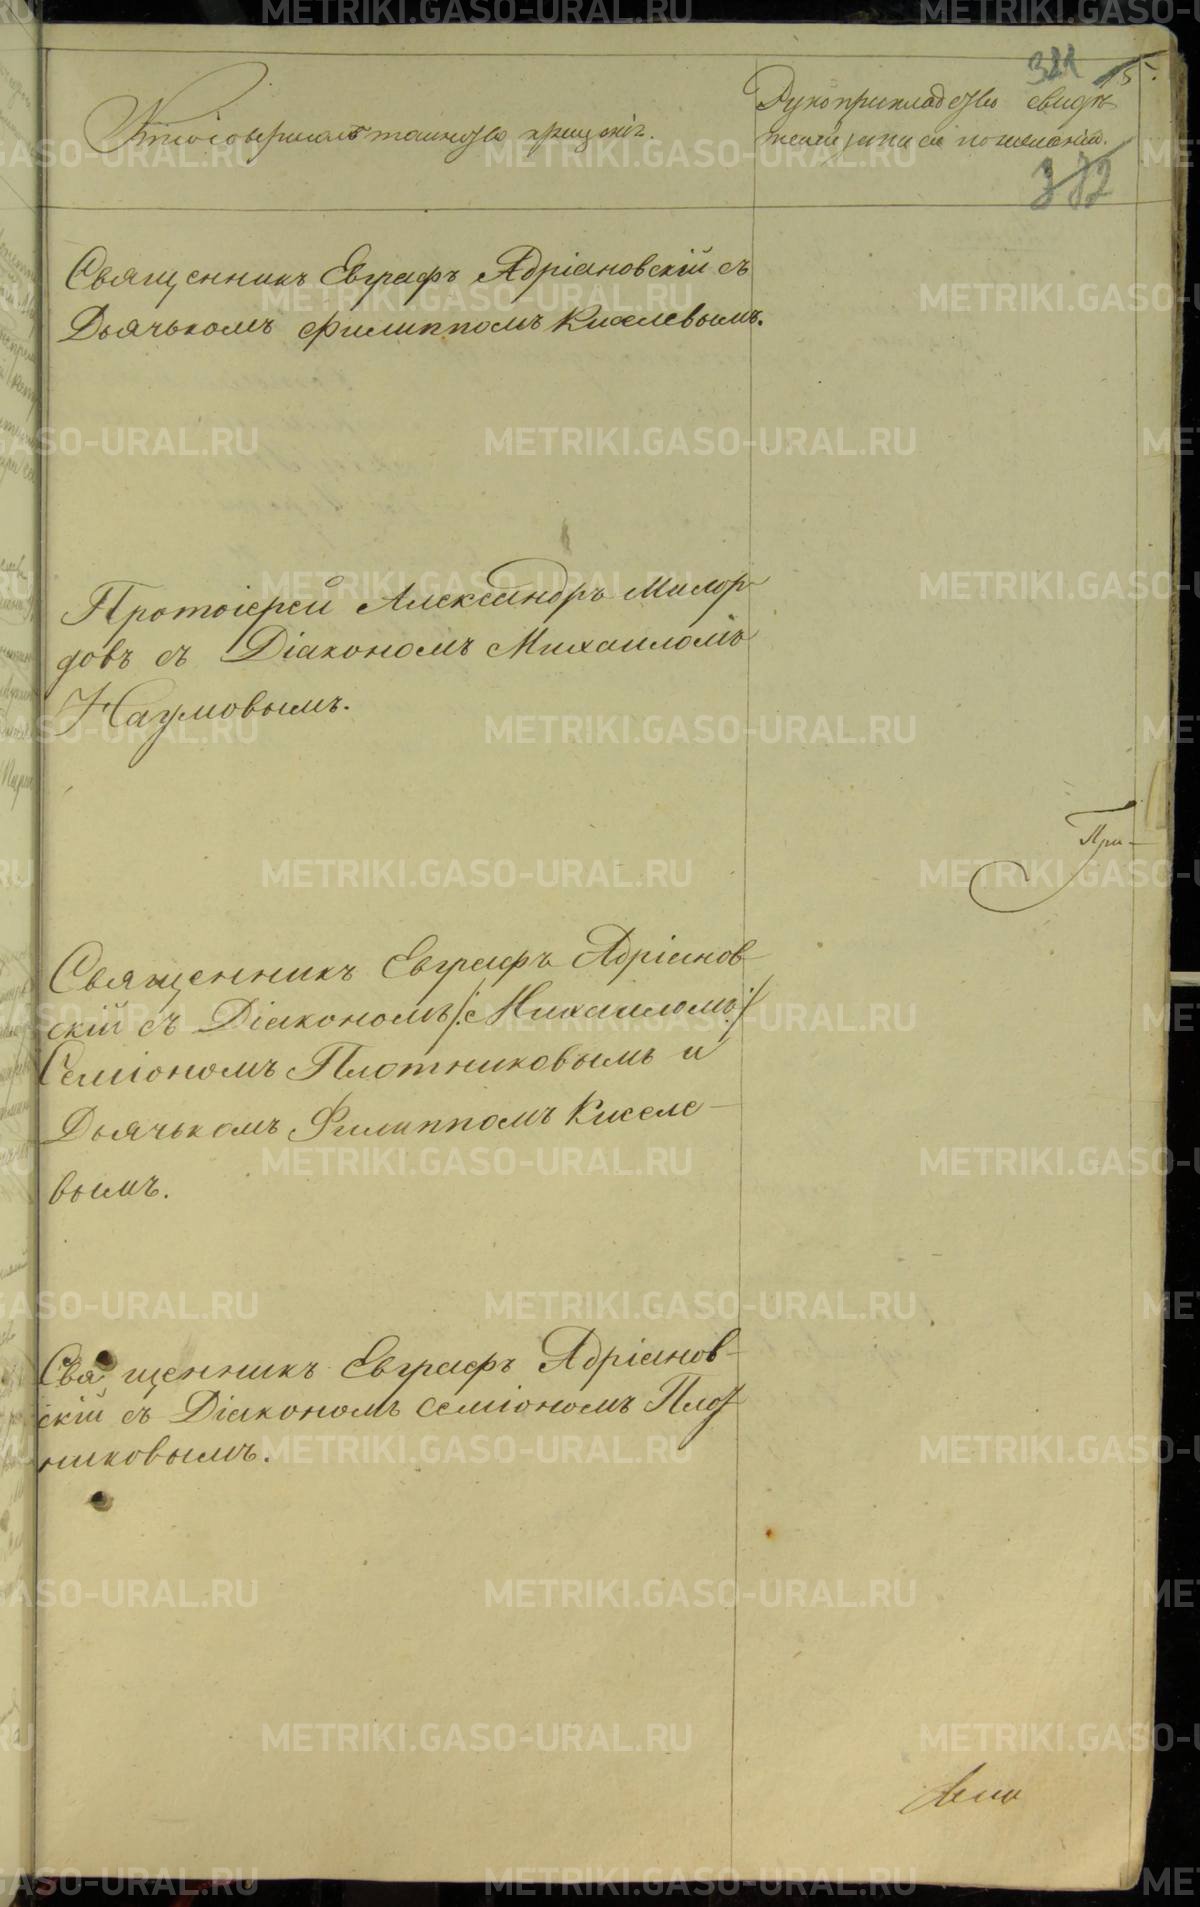 381 15.
Кто совершалъ таинство крещенія.
Рукоприкладство свидѣ-
телей записи по желанію.
372
Священникъ Евграфъ Адріановскій съ
Дьячькомъ Филиппомъ Киселевымъ.
Протоіерей Александръ Милор-
довъ съ Діакономъ Михаиломъ
Наумовымъ.
При-
Священникъ Евграфъ Адріанов-
скій съ Діакономъ /:Михаиломъ:/
Семіономъ Плотниковымъ и
Дьячькомъ Филиппомъ Киселе-
вымъ.
Священникъ Евграфъ Адріанов-
скій съ Діакономъ Семіономъ Плот
никовымъ.
METRIKI.GASO-URAL.RU